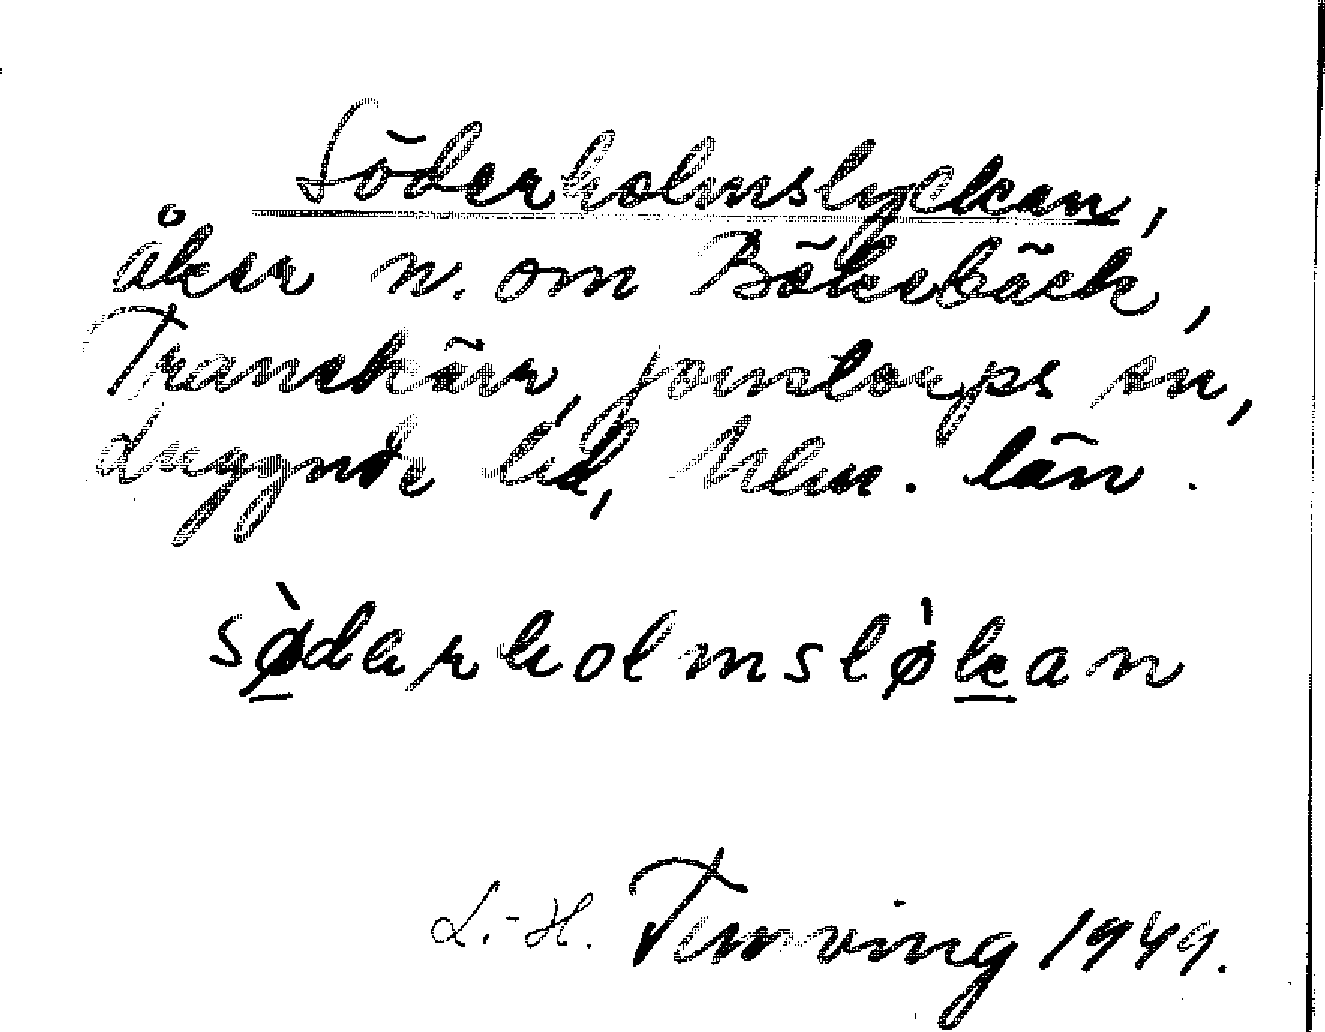 Söderholmslyckan,
åker n. om Bökebäck,
Tranekärr, Jonstorps sn,
Luggude hd, Mlm. län.
sø̀dərholmsløkan
L.-H. Temving 1949.